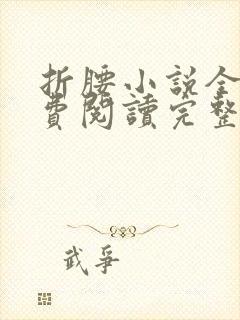 折腰小說全
費閱讀完整
武爭